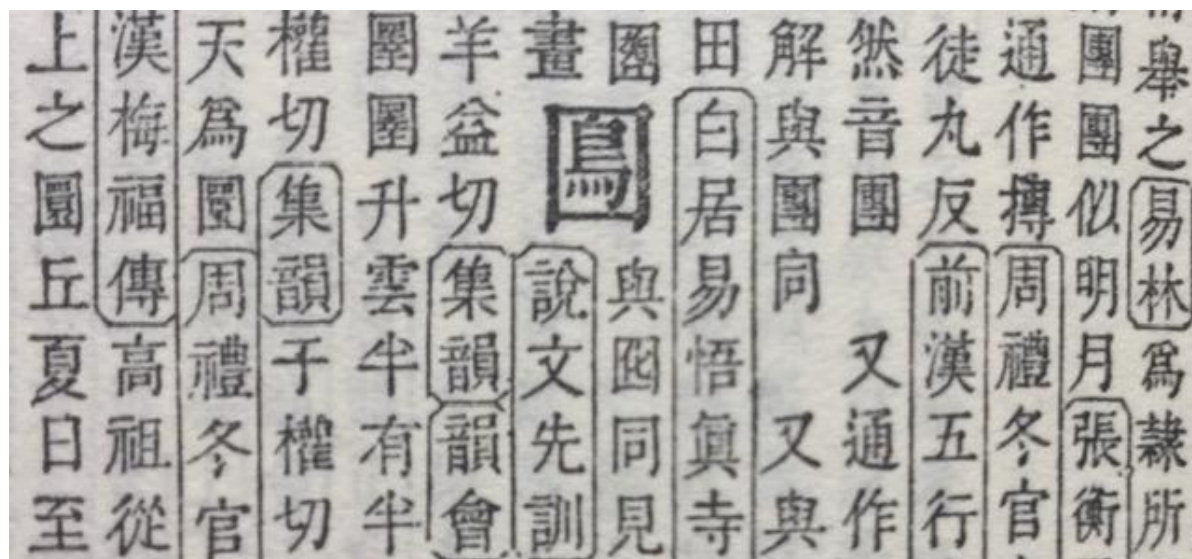 舉之易林爲隸所
團團似明月張衡
通作摶周禮冬官
徒丸反前漢五行
然音團 又通作
解與團同 又與
田白居易悟眞寺
與囮同見
畫 說文先訓
羊益切集韻韻會
圛圛升雲半有半
權切集韻于權切
天爲圜周禮冬官
漢梅福傳高祖從
上之圜丘夏日至